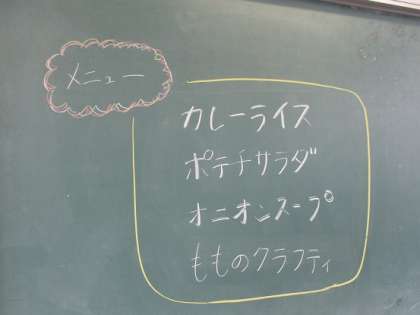 メニュー
カレーライス
ポテチサラダ
オニオンスープ
もものクラフティ